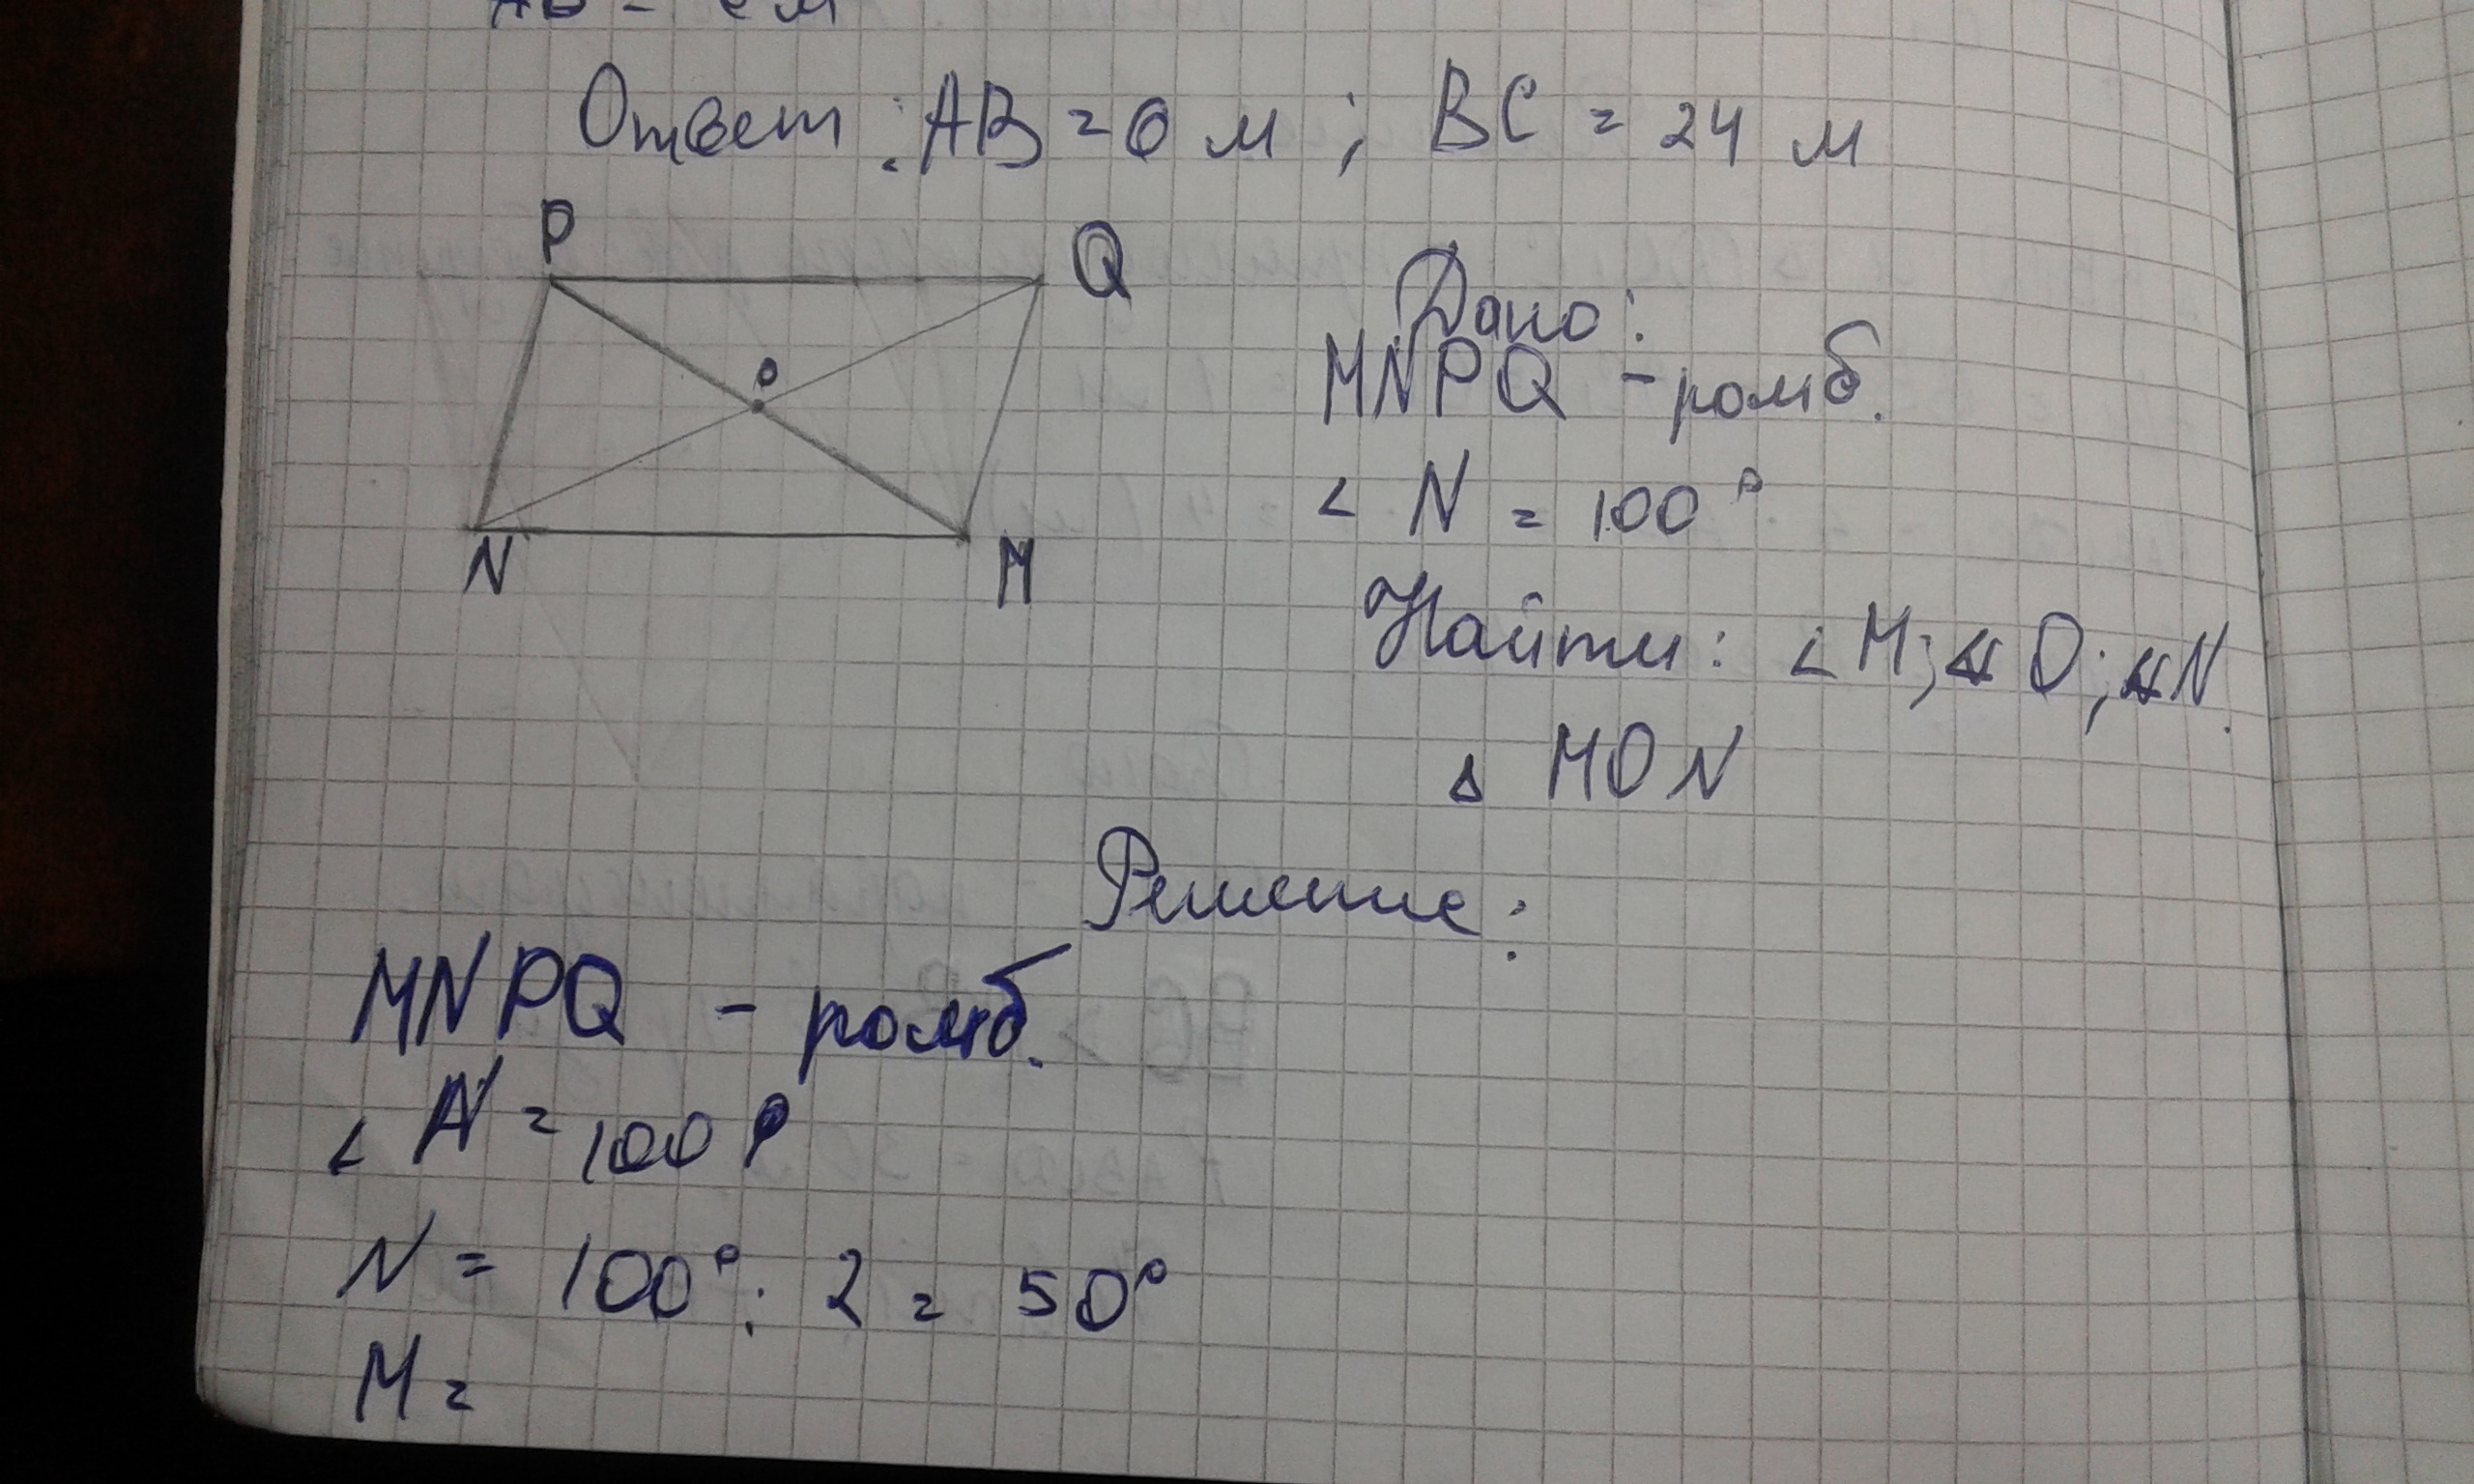 Ответ: AB = 6 м; BC = 24 м
P
Q
O
N
M
Дано:
MNPQ - ромб.
∠ N = 100°
Найти: ∠ M; ∠ O; ∠ N.
△ MON
Решение:
MNPQ - ромб.
∠ N = 100°
N = 100° : 2 = 50°
M =